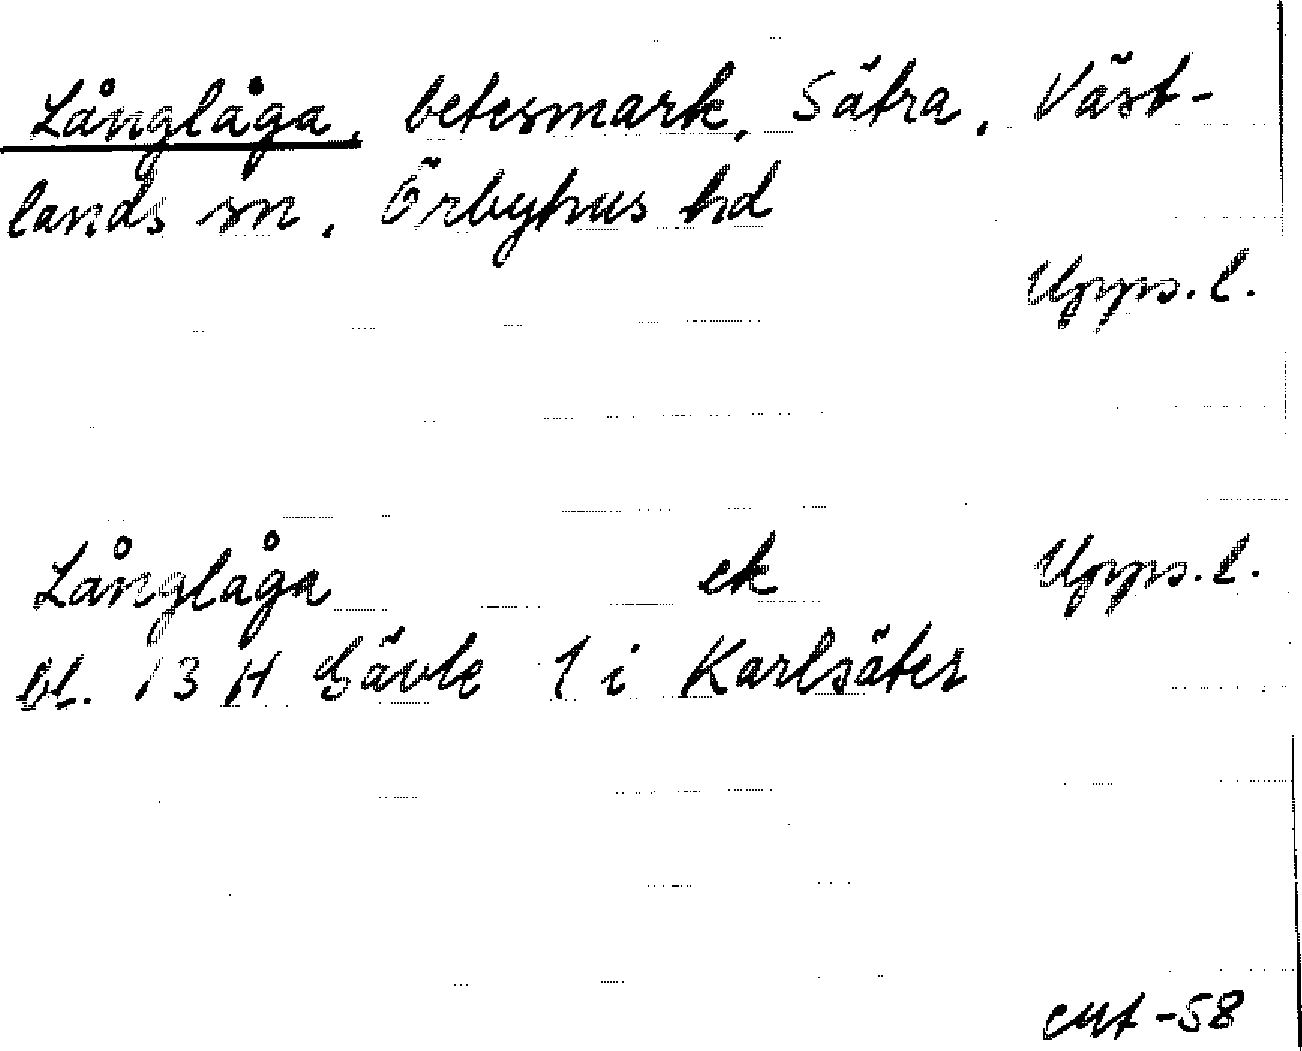 Långlåga, betesmark, Sätra, Väst-
lands sn, Örbyhus hd
Upps. l.
Långlåga ek Upps. l.
bl. 13 H Gävle 1 i Karlsäter
-58